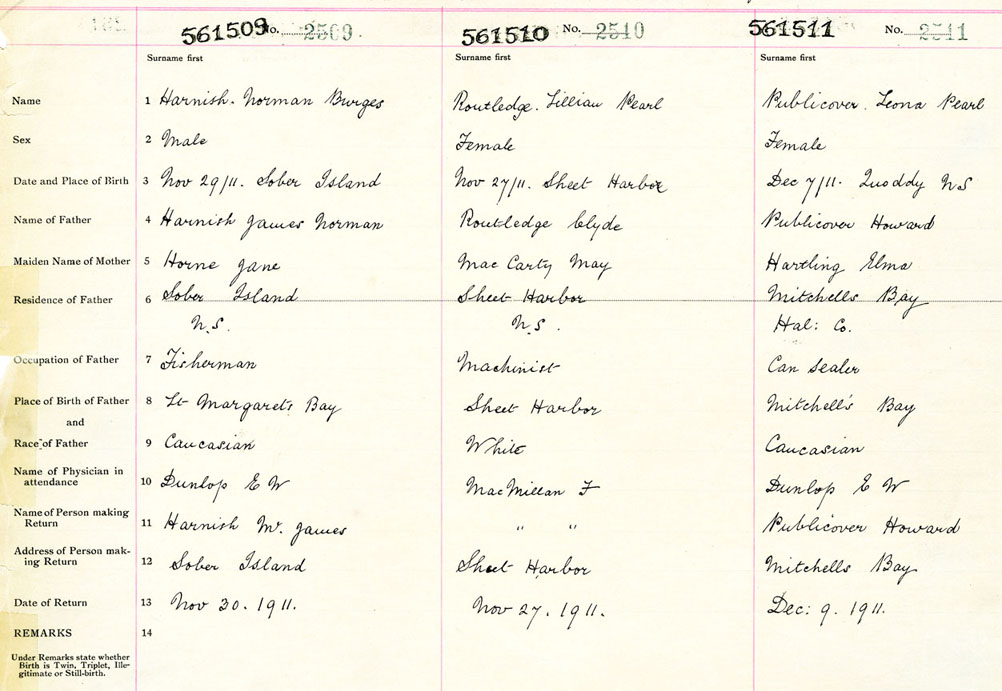 561509 No. 2509 561510 No. 2510 561511 No. 2511
Surname first Surname first Surname first
Name 1 Harnish. Norman Burges Routledge. Lillian Pearl Publicover. Leona Pearl
Sex 2 Male Female Female
Date and Place of Birth 3 Nov 29/11. Sober Island Nov 27/11. Sheet Harbor Dec 7/11. Quoddy NS
Name of Father 4 Harnish James Norman Routledge Clyde Publicover Howard
Maiden Name of Mother 5 Horne Jane Mac Carty May Hartling Elma
Residence of Father 6 Sober Island Sheet Harbor Mitchells Bay
N.S. N.S. Hal: Co.
Occupation of Father 7 Fisherman Machinist Can Sealer
Place of Birth of Father 8 St Margaret's Bay Sheet Harbor Mitchell's Bay
and
Race of Father 9 Caucasian White Caucasian
Name of Physician in
attendance 10 Dunlop E W MacMillan F Dunlop E W
Name of Person making
Return 11 Harnish Mr. James " " Publicover Howard
Address of Person mak-
ing Return 12 Sober Island Sheet Harbor Mitchells Bay
Date of Return 13 Nov 30. 1911. Nov 27. 1911. Dec: 9. 1911.
REMARKS 14
Under Remarks state whether
Birth is Twin, Triplet, Ille-
gitimate or Still-birth.